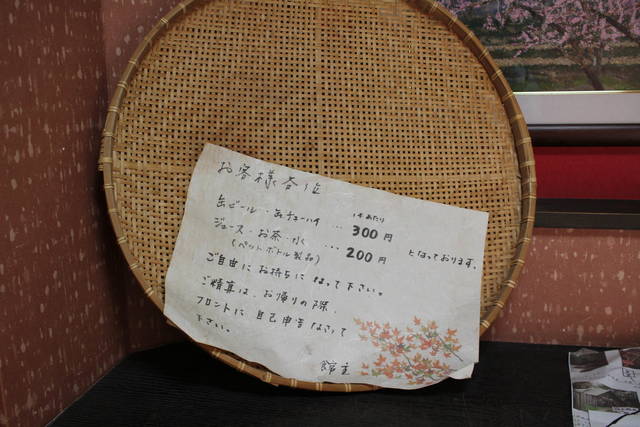 お客様各位
缶ビール・缶チューハイ … 1本あたり 300円
ジュース・お茶・水 … 200円 となっております。
(ペットボトル製品)
ご自由にお持ちになって下さい。
ご精算は、お帰りの際、
フロントに自己申告なさって
下さい。
館主